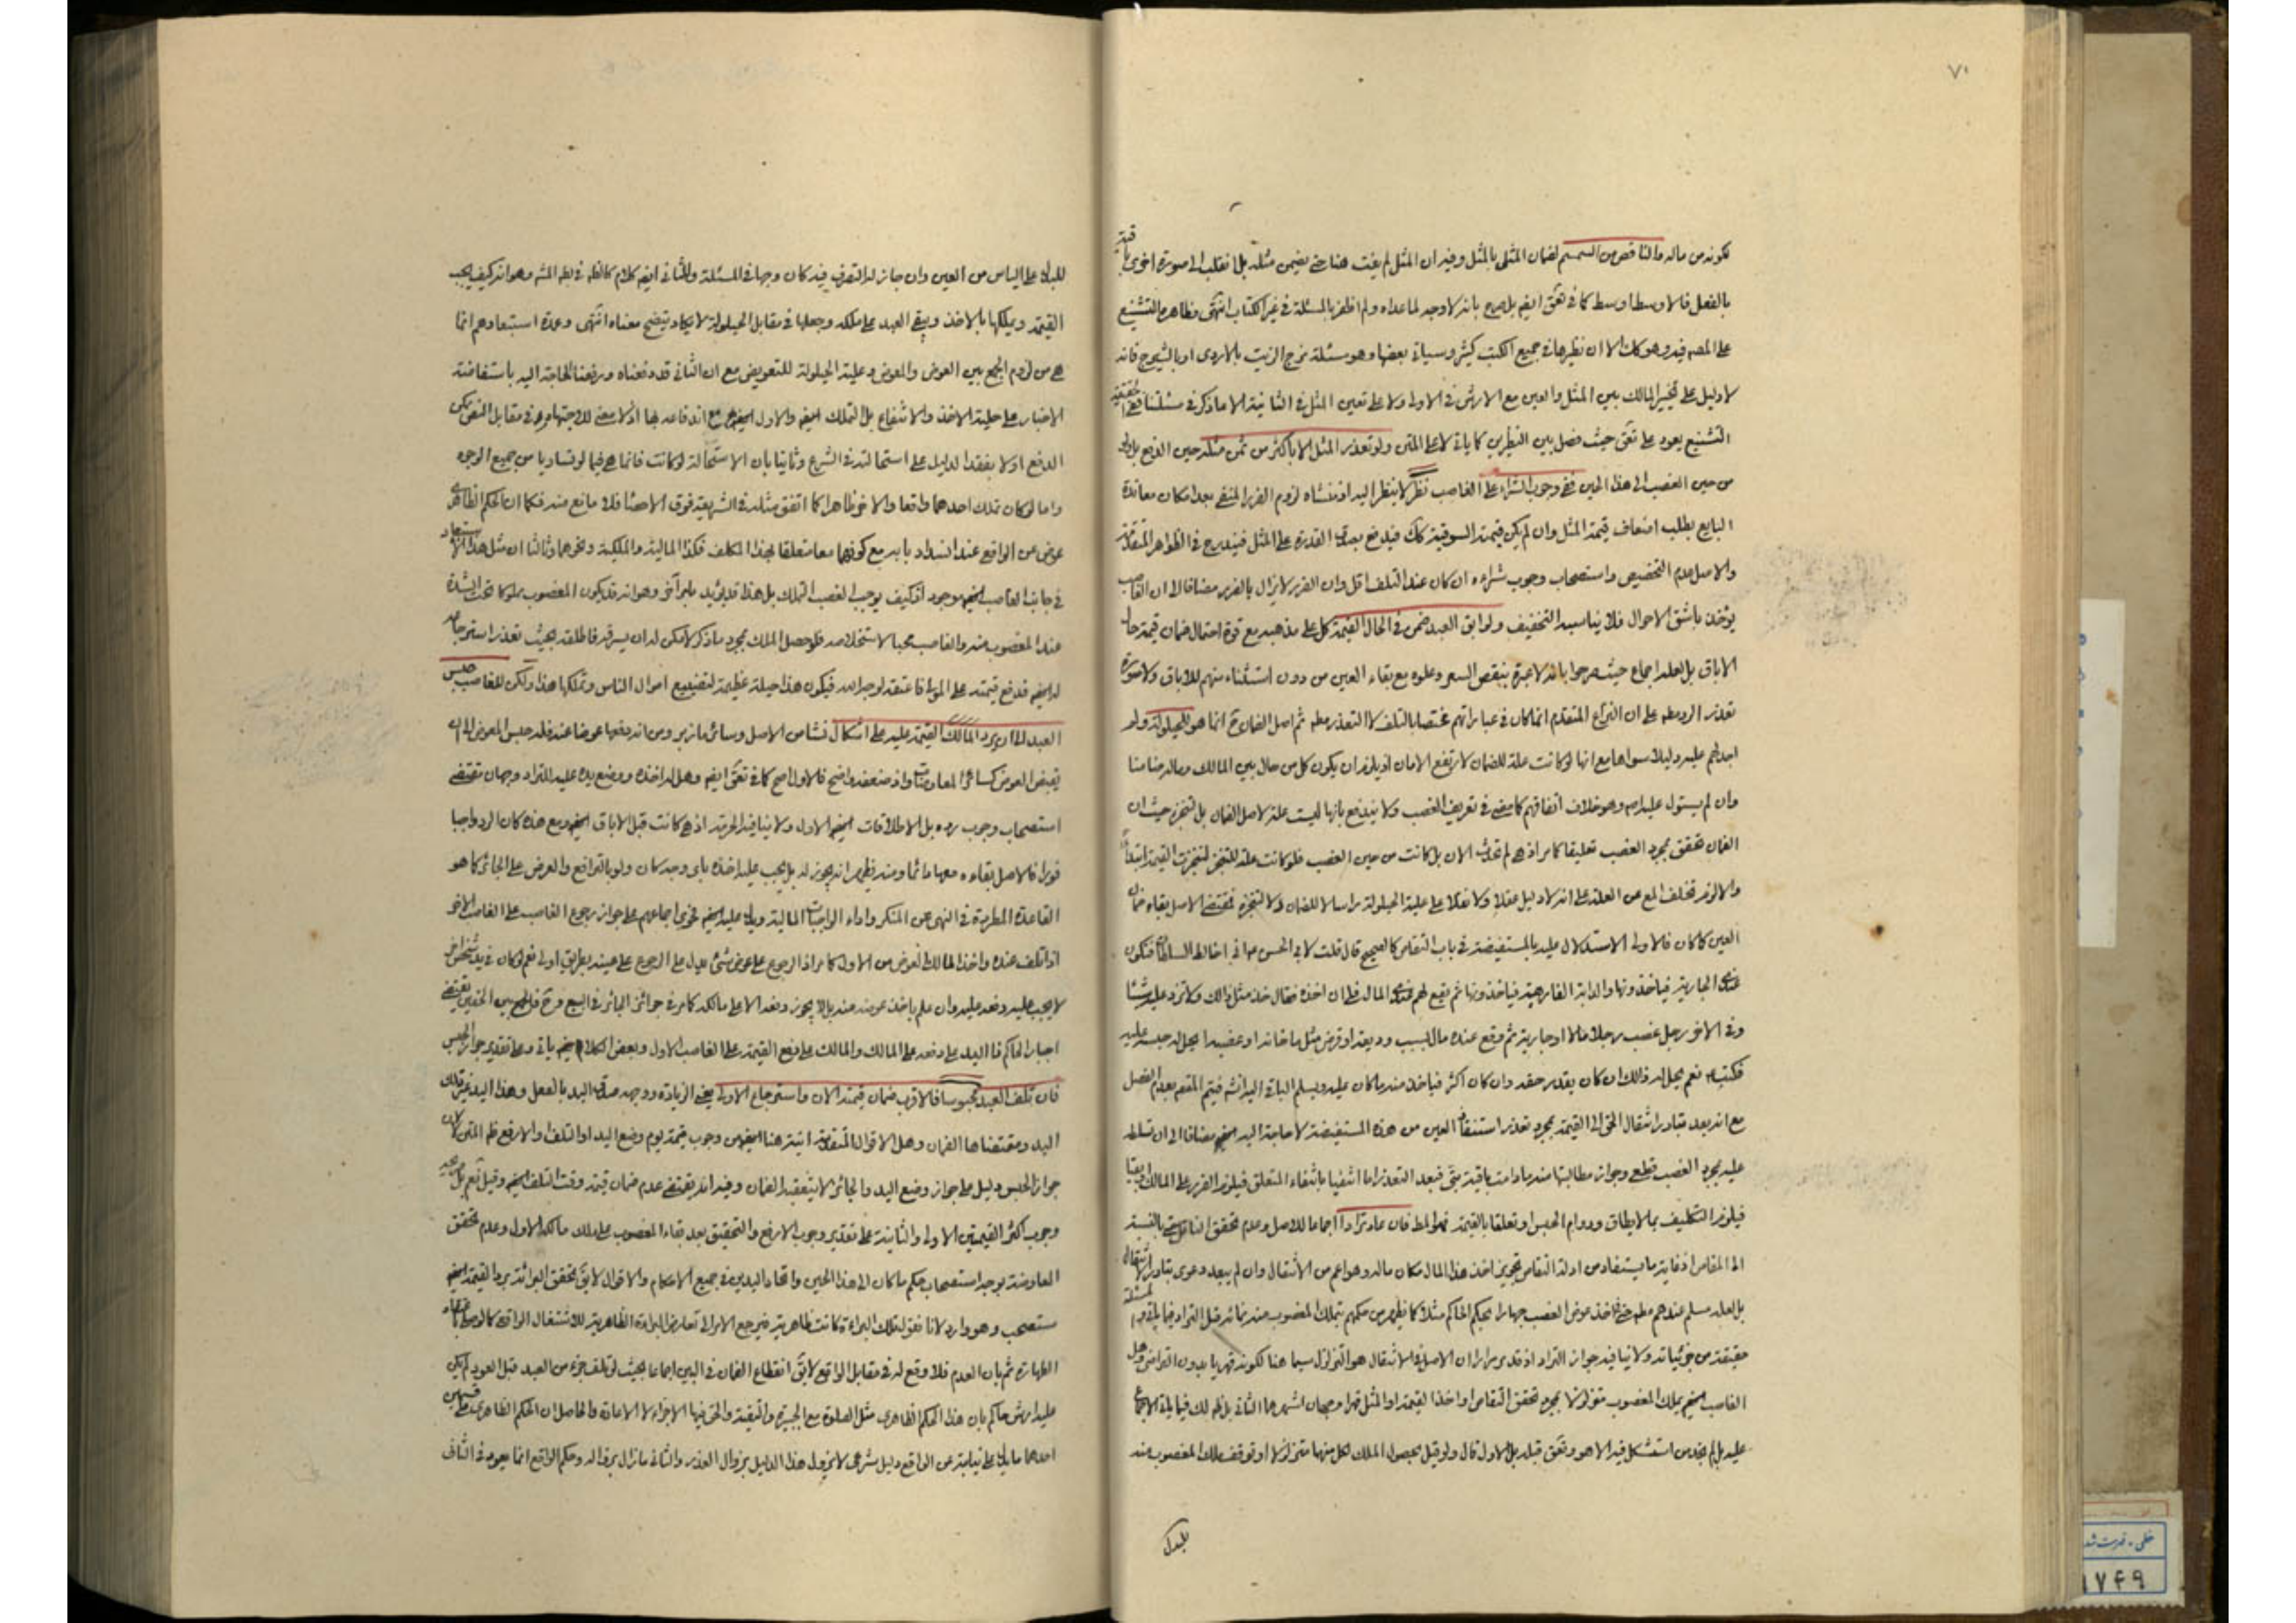 ٧٠
لكونه من ماله والناقص من السمسم لضمان المثلى بالمثل وفيه ان المثل لم يفت هنا حتى يضمن مثله بل انقلب الى صورة اخرى
بالفعل فالاوسط اوسط كما في تعق ايضا بل صرح بانه لا وجه لما عداه ولم اظفر بالمسئلة في غير الكتاب انتهى وظاهره التشنيع
على المصـ فيه وهو كك الا ان نظيرها في جميع الكتب كثير وسياتي بعضها وهو مسئلة مزج الزيت بالاردى او بالشيرج فانه
لا دليل على تخيير المالك بين المثل والعين مع الارش في الاولى ولا على تعين المثل في الثانية الا ما ذكر في مسئلتنا
التشنيع يعود على تعق حيث فصل بين النظيرين كما ياتي لا على المتن ولو تعذر المثل الا باكثر من ثمن مثله حين الدفع
من حين الغصب الى هذا الحين ففي وجوب الشراء على الغاصب نظر لا ينظر اليه اذ منشاه لزوم الضرر المنفي بعد امكان معاندة
البايع بطلب اضعاف قيمة المثل وان لم يكن قيمته السوقية كك فيدفع بصدق القدرة على المثل فيندرج في الظواهر المتقدمة
والاصل عدم التخصيص واستصحاب وجوب شراءه ان كان عند التلف اقل وان الضرر لا يزال بالضرر مضافا الى ان الغاصب
يؤخذ باشق الاحوال فلا يناسبه التخفيف ولو ابق العبد ضمن في الحال القيمة كل على مذهبه مع قوة احتمال ضمان قيمة حال
الاباق بل لعله اجماع حيث صرحوا بانه لا عبرة بنقص السعر وعلوه مع بقاء العين من دون استثناء منهم للاباق ولا صورة
تعذر الرد مطـ على ان النزاع المتقدم انما كان في عباراتهم مختصا بالتلف لا التعذر مطـ ثم اصل الضمان ح انما هو للحيلولة ولم
اجد لهم عليه دليلا سواها مع انها لو كانت علة للضمان لارتفع الامان اذ يلزم ان يكون كل من حال بين المالك وماله ضامنا
وان لم يستول عليه اصـ وهو خلاف اتفاقهم كما مضى في تعريف الغصب ولا يندفع بانها ليست علة لاصل الضمان بل لتنجزه حيث ان
الضمان تحقق بمجرد الغصب تعليقا كما مر اذ هي لم تحدث الان بل كانت من حين الغصب فلو كانت علة للتنجز لتنجزت القيمة ابتداء
والا لزم تخلف المع عن العلة على انه لا دليل عقلا ولا نقلا على علية الحيلولة راسا لا للضمان ولا لتنجزه فمقتضى الاصل بقاء ضمان
العين كما كان فالاولى الاستدلال عليه بالمستفيضة في باب التقاص كالصحيح قال قلت لابي الحسن ع اني اخالط السلطان فتكون
عندي الجارية فياخذونها والدابة الفارهة فياخذونها ثم يقع لهم عندي المال فلي ان اخذه فقال خذ مثل ذلك ولا تزد عليه شيئا
وفي الاخر رجل غصب رجلا مالا او جارية ثم وقع عنده مال بسبب وديعة او قرض مثل ما خانه او غصبه ايحل له حبسه عليه
فكتب ع نعم يحل له ذلك ان كان بقدر حقه وان كان اكثر فياخذ منه ما كان عليه ويسلم الباقي اليه انشـ فيتم المقصـ بعدم الفصل
مع انه بعد تبادر انتقال الحق الى القيمة بمجرد تعذر استنقاذ العين من هذه المستفيضة لا حاجة اليه ايضا مضافا الى ان تسلط
عليه بمجرد الغصب قطعي وجواز مطالبتها منه ما دامت باقية فبعد التعذر اما انتفيا بانتفاء المتعلق فيلزم الضرر على المالك او بقيا
فيلزم التكليف بما لا يطاق ودوام الحبس او تعلقا بالقيمة فهو المط فان عاد ترادا اجماعا للاصل وعدم تحقق الناقل حتى بالنسبة
الى التقاص اذ غاية ما يستفاد من ادلة التقاص تجويز اخذ هذا المال مكان ماله وهو اعم من الانتقال وان لم يبعد دعوى تبادر انتقاله
بل لعله مسلم عندهم مطـ حتى في اخذ عوض الغصب جهارا بحكم الحاكم مثلا كما يظهر من حكمهم بتملك المغصوب منه نمائه قبل التراد
حقيقة من جزئياته ولا ينافيه جواز التراد اذ قد مر مرارا ان الاصل في الانتقال هو التزلزل سيما هنا لكونه قهريا بدون التراضي وهل
الغاصب ايضا يملك المغصوب متزلزلا بمجرد تحقق التقاص او اخذ القيمة او المثل قهرا وجهان اشهرهما الثاني بل
عليه بل لم نجد من استشكل فيه الا هو وتعق قبله بل الاول قال ولو قيل بحصول الملك لكل منهما متزلزلا او توقف ملك المغصوب منه
للبدل
للبدل على الياس من العين وان جاز له التصرف فيه كان وجها في المسئلة وللثاني ايضا كلام وهو انه كيف يجب
القيمة ويملكها بالاخذ ويبقى العبد على ملكه وجعلها في مقابل الحيلولة لا يكاد يتضح معناه انتهى وعمدة استبعادهم انما
هي من لزوم الجمع بين العوض والمعوض وعلية الحيلولة للتعويض مع ان الثاني قد دفعناه ورفعنا الحاجة اليه باستفاضة
الاخبار على حلية الاخذ والانتفاع بل التملك ايضا والاول ايضا مع اندفاعه بها اذ لا معنى للاجتهاد في مقابل النص يمكن
الدفع اولا بفقد الدليل على استحالته في الشرع وثانيا بان الاستحالة لو كانت فانما هي فيما لو تساويا من جميع الوجوه
واما لو كان تملك احدهما واقعا والاخر ظاهرا كما اتفق مثله في الشريعة فوق الاحصاء فلا مانع منه فكما ان الحكم الظاهري
عوض عن الواقع عند انسداد بابه مع كونهما معا متعلقا لهذا المكلف فكذا المالية والملكية ونحوهما وثالثا ان مثل هذا الاستبعاد
في جانب الغاصب ايضا موجود اذ كيف يوجب الغصب التملك بل هذا قد يؤيد بامر آخر وهو انه قد يكون المغصوب مملوكا تحت الشدة
عند المغصوب منه والغاصب محبا لاستخلاصه فلو حصل الملك بمجرد ما ذكر لامكن له ان يسرقه فاطلقه بحيث تعذر استرجاعه
له ايضا فدفع قيمته على المولى فاعتقه لوجه الله فيكون هذا حيلة عظيمة لتضييع اموال الناس وتملكها هذا ولكن للغاصب حبس
العبد الى ان يرد المالك القيمة عليه على اشكال نشا من الاصل وسائر ما زبر ومن انه دفعها عوضا عنه فله حبس المعوض الى ان
يقبض العوض كسائر المعاوضات واذ ضعفه واضح فالاول اصح كما في تعق ايضا وهل له اخذه ووضع يده عليه للتراد وجهان مقتضى
استصحاب وجوب رده بل الاطلاقات ايضا الاول ولا ينافيه الحرمة اذ هي كانت قبل الاباق ايضا ومع هذه كان الرد واجبا
فورا فالاصل بقاءه معها دائما ومنه يظهر انه يجوز له بل يجب عليه اخذه باي وجه كان ولو بالترافع والعرض على الجائر كما هو
القاعدة المطردة في النهي عن المنكر واداء الواجبات المالية ويدل عليه ايضا فحوى اجماعهم على جواز رجوع الغاصب على الغاصب الاخر
اذا تلف عنده واخذ المالك العوض من الاول كما مر اذ الرجوع على عوض شئ يدل على الرجوع على عينه بطريق اولى نعم لو كان في يد شخص اخر
لا يجب عليه دفعه عليه وان علم باخذ عوضه منه بل لا يجوز دفعه الا على مالكه كما مر في جوائز الجائر في البيع وح فالجمع بين الحقين يقتضي
اجبار الحاكم ذا اليد على دفعه على المالك والمالك على دفع القيمة على الغاصب الاول وبعض الكلام ايضا ياتي وعلى تقدير جواز الحبس
فان تلف العبد محبوسا فالاقرب ضمان قيمته الان واسترجاع الاولى يعني الزيادة ووجهه صدق اليد بالفعل وهذا اليد غير تلك
اليد ومقتضاها الضمان وهل الاقوال المتقدمة اتية هنا ايضا من وجوب قيمة يوم وضع اليد او التلف او الارفع ظـ المتن
جواز الحبس دليل على جواز وضع اليد والجائز لا يتعقبه الضمان وفيه انه يقتضي عدم ضمان قيمته وقت التلف ايضا وقيل نعم بل
وجوب اكثر القيمتين الاولى والثانية على تقدير وجوب الارفع والتحقيق بعد بقاء المغصوب على ملك مالكه الاول وعدم تحقق
المعاوضة يوجه استصحاب حكم ما كان الى هذا الحين واتحاد اليدين في جميع الاحكام والاقوال لا يق تحقق البرائة برد القيمة ايضا
مستصحب وهو وارد لانا نقول تلك البراءة كانت ظاهرية فيرجع الامر الى تعارض البراءة الظاهرية للاشتغال الواقعي
الطهارة ثم بان العدم فلا وقع له في مقابل الواقع لا يق انقطاع الضمان في البين اجماعا بحيث لو تلف جزء من العبد قبل العود لم يكن
عليه ارش حاكم بان هذا الحكم الظاهري مثل الصلوة مع الجبيرة والتقية والحق فيها الاجزاء لا الاعادة والحاصل ان الحكم الظاهري على قسمين
احدهما ما دل على نيابته عن الواقع دليل شرعي لا يزول هذا الدليل بزوال العذر والثاني ما زال بزواله وحكم الواقع انما يعود في الثاني
خطى - فهرست شده
١٧۴٩